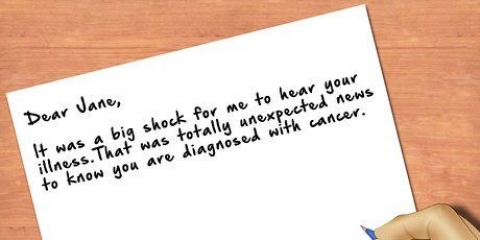 Dear Jane,
It was a big shock for me to hear your
illness.That was totally unexpected news
to know you are diagnosed with cancer.